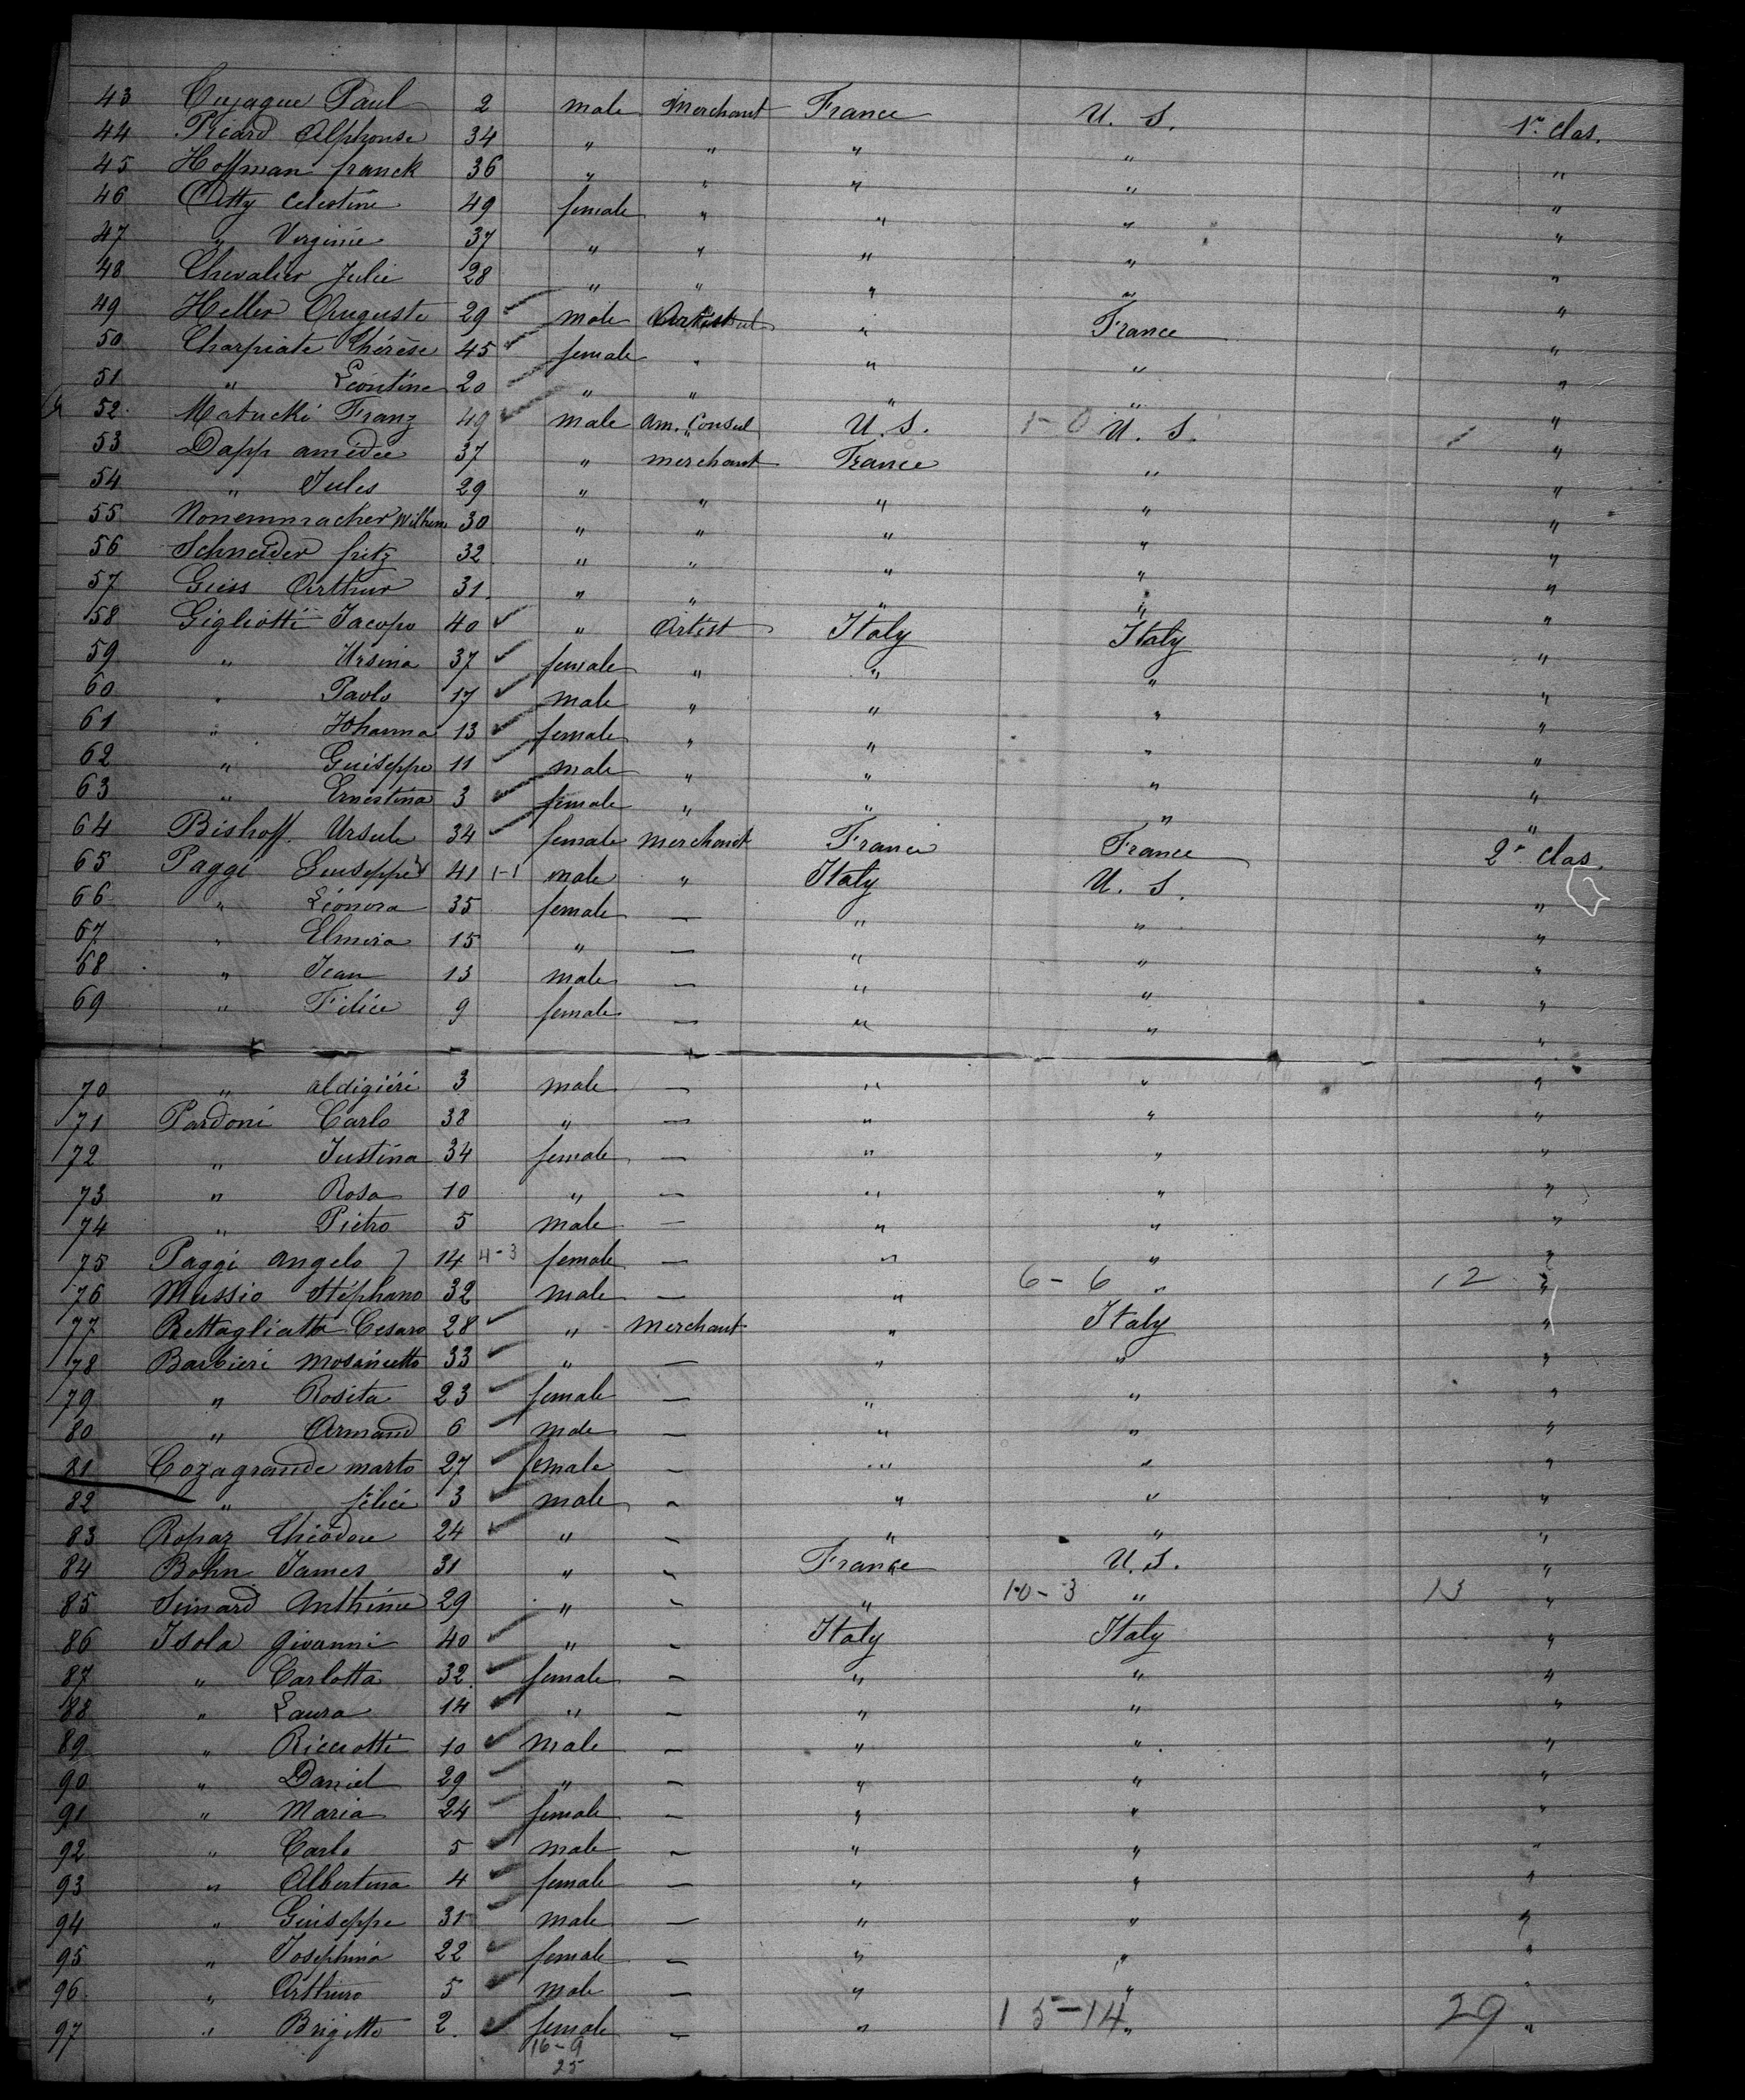 43 Cujague Paul 2 male Merchant France U. S. 1r clas.
44 Picard Alphonse 34 " " " " "
45 Hoffman franck 36 " " " " "
46 Celestine 49 female " " " "
47 " Verginie 37 " " " " "
48 Chevalier Julie 28 " " " " "
49 Heller Auguste 29 male Artist " France "
50 Charpiate Thérèse 45 female " " " "
51 " Léontine 20 " " " " "
52 Matucki Franz 49 male Am. Consul U. S. 1-0 U. S. "
53 Dapp amédée 37 " merchant France " "
54 " Jules 29 " " " " "
55 Nonemmacher Wilhem 30 " " " " "
56 Schneider fritz 32 " " " " "
57 Geiss Arthur 31 " " " " "
58 Gigliotti Jacopo 40 " Artist Italy Italy "
59 " Ursina 37 female " " " "
60 " Paolo 17 male " " " "
61 " Johanna 13 female " " " "
62 " Guiseppe 11 male " " " "
63 " Ernestina 3 female " " " "
64 Bishoff Ursule 34 female merchant France France 2r clas.
65 Paggi Guiseppe 41 1-1 male " Italy U. S. "
66 " Léonora 35 female — " " "
67 " Elmira 15 " — " " "
68 " Jean 13 male — " " "
69 " Félicie 9 female — " " "
70 " aldigiéri 3 male — " " "
71 Pardoni Carlo 38 " — " " "
72 " Justina 34 female — " " "
73 " Rosa 10 " — " " "
74 " Pietro 5 male — " " "
75 Paggi angelo 14 4-3 female — " " "
76 Mussio Stéphano 32 male — " 6-6 " 12 "
77 Rettagliatta Cesare 28 " Merchant " Italy "
78 Barbieri 33 " — " " "
79 " Rosita 23 female — " " "
80 " Armand 6 male — " " "
81 Cozagrande marto 27 female — " " "
82 " félicé 3 male — " " "
83 Ropaz Théodore 24 " — " " "
84 Bohn James 31 " — France U. S. "
85 Simard Anthime 29 " — " 10-3 " 13 "
86 Isola Givanni 40 " — Italy Italy "
87 " Carlotta 32 female — " " "
88 " Laura 14 " — " " "
89 " Ricciotti 10 male — " " "
90 " Daniel 29 " — " " "
91 " Maria 24 female — " " "
92 " Carlo 5 male — " " "
93 " Albertina 4 female — " " "
94 " Guiseppe 31 male — " " "
95 " Josephina 22 female — " " "
96 " Arthuro 5 male — " " "
97 " Brigitte 2 female — " 15-14 " 29 "
16-9
25